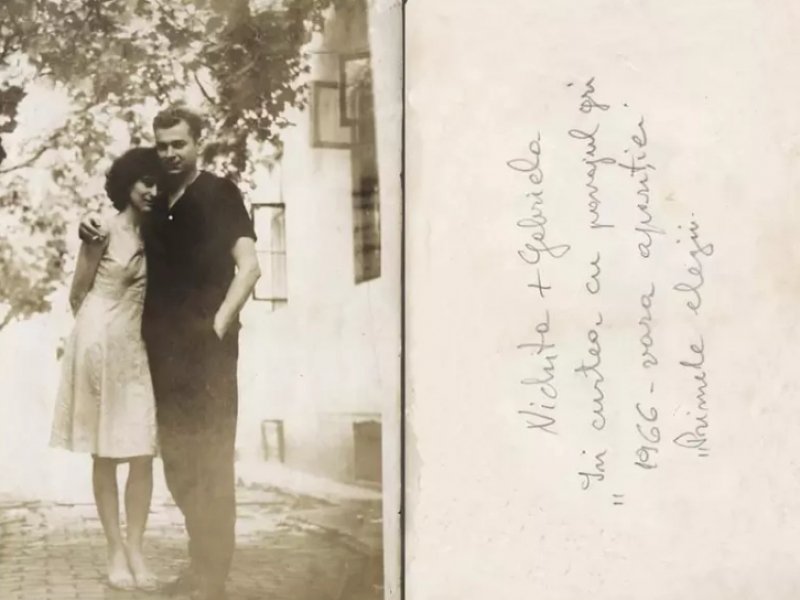 Nichita + Gabriela
„În curtea cu pavajul gri
1966 - vara apariției
„Primele elegii".